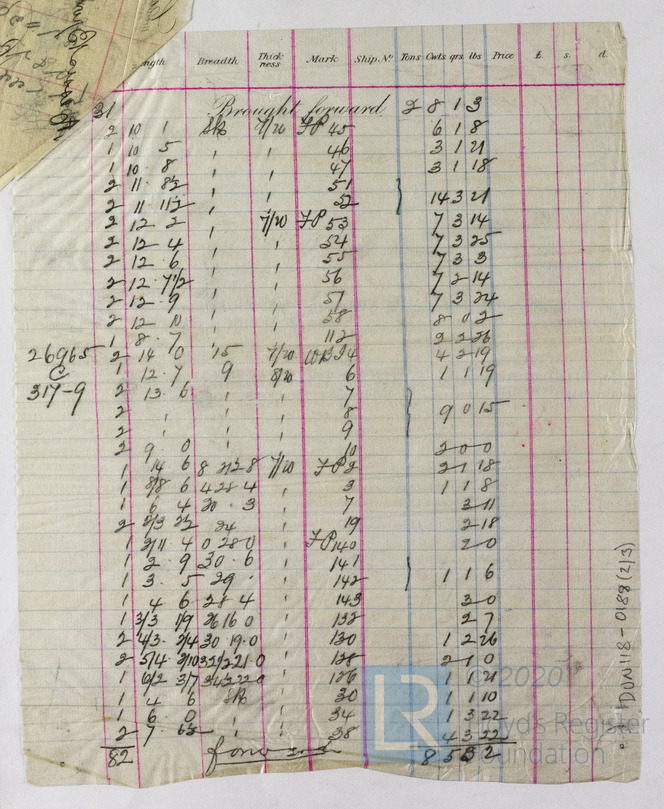 ngth Breadth Thick ness Mark Ship No Tons Cwts qrs lbs Price £ s. d.
31 Brought forward 7 8 1 3
2 10 1 Sk 7/20 FP 45 6 1 8
1 10 5 " " 46 3 1 21
1 10 . 8 " " 47 3 1 18
2 11 . 8½ " 51
2 11 . 11½ " 52 14 3 21
2 12 . 2 " 7/20 FP 53 7 3 14
2 12 4 " " 54 7 3 25
2 12 . 6 " " 55 7 3 3
2 12 . 7½ " " 56 7 2 14
2 12 . 9 " " 57 7 3 24
2 12 10 " " 58 8 0 2
1 8 . 7 " " 112 2 2 26
26965 2 14 0 15 7/20 24 4 2 19
C 1 12 . 7 9 8/20 6 1 1 19
317-9 2 13 . 6 " " 7
2 " " " 8 9 0 15
2 " " " 9
2 9 0 " " 10 2 0 0
1 14 6 8 7/20 FP 2 2 1 18
1 6 4 28 4 " 3 1 1 8
1 6 4 30 . 3 " 7 3 11
2 24 " 19 2 18
1 4 0 28 0 " FP 140 2 0
1 2 . 9 30 . 6 " 141
1 3 . 5 29 . " 142 1 1 6
1 4 6 28 4 " 143 3 0
1 3/3 1/9 26 16 0 " 132 2 7
2 4/3 . 2/4 30 . 19 . 0 " 130 1 2 26
2 5/4 . 0 " 128 2 1 0
1 6/2 3/7 " 126 1 1 21
1 4 6 Sk " 30 1 1 10
1 6 . 0 " " 34 1 3 22
2 7 . " " 38 4 3 22
82 forward 8 5 3 2
DON118-0188 (2/3)
LR © 2020
Lloyd's Register
Foundation